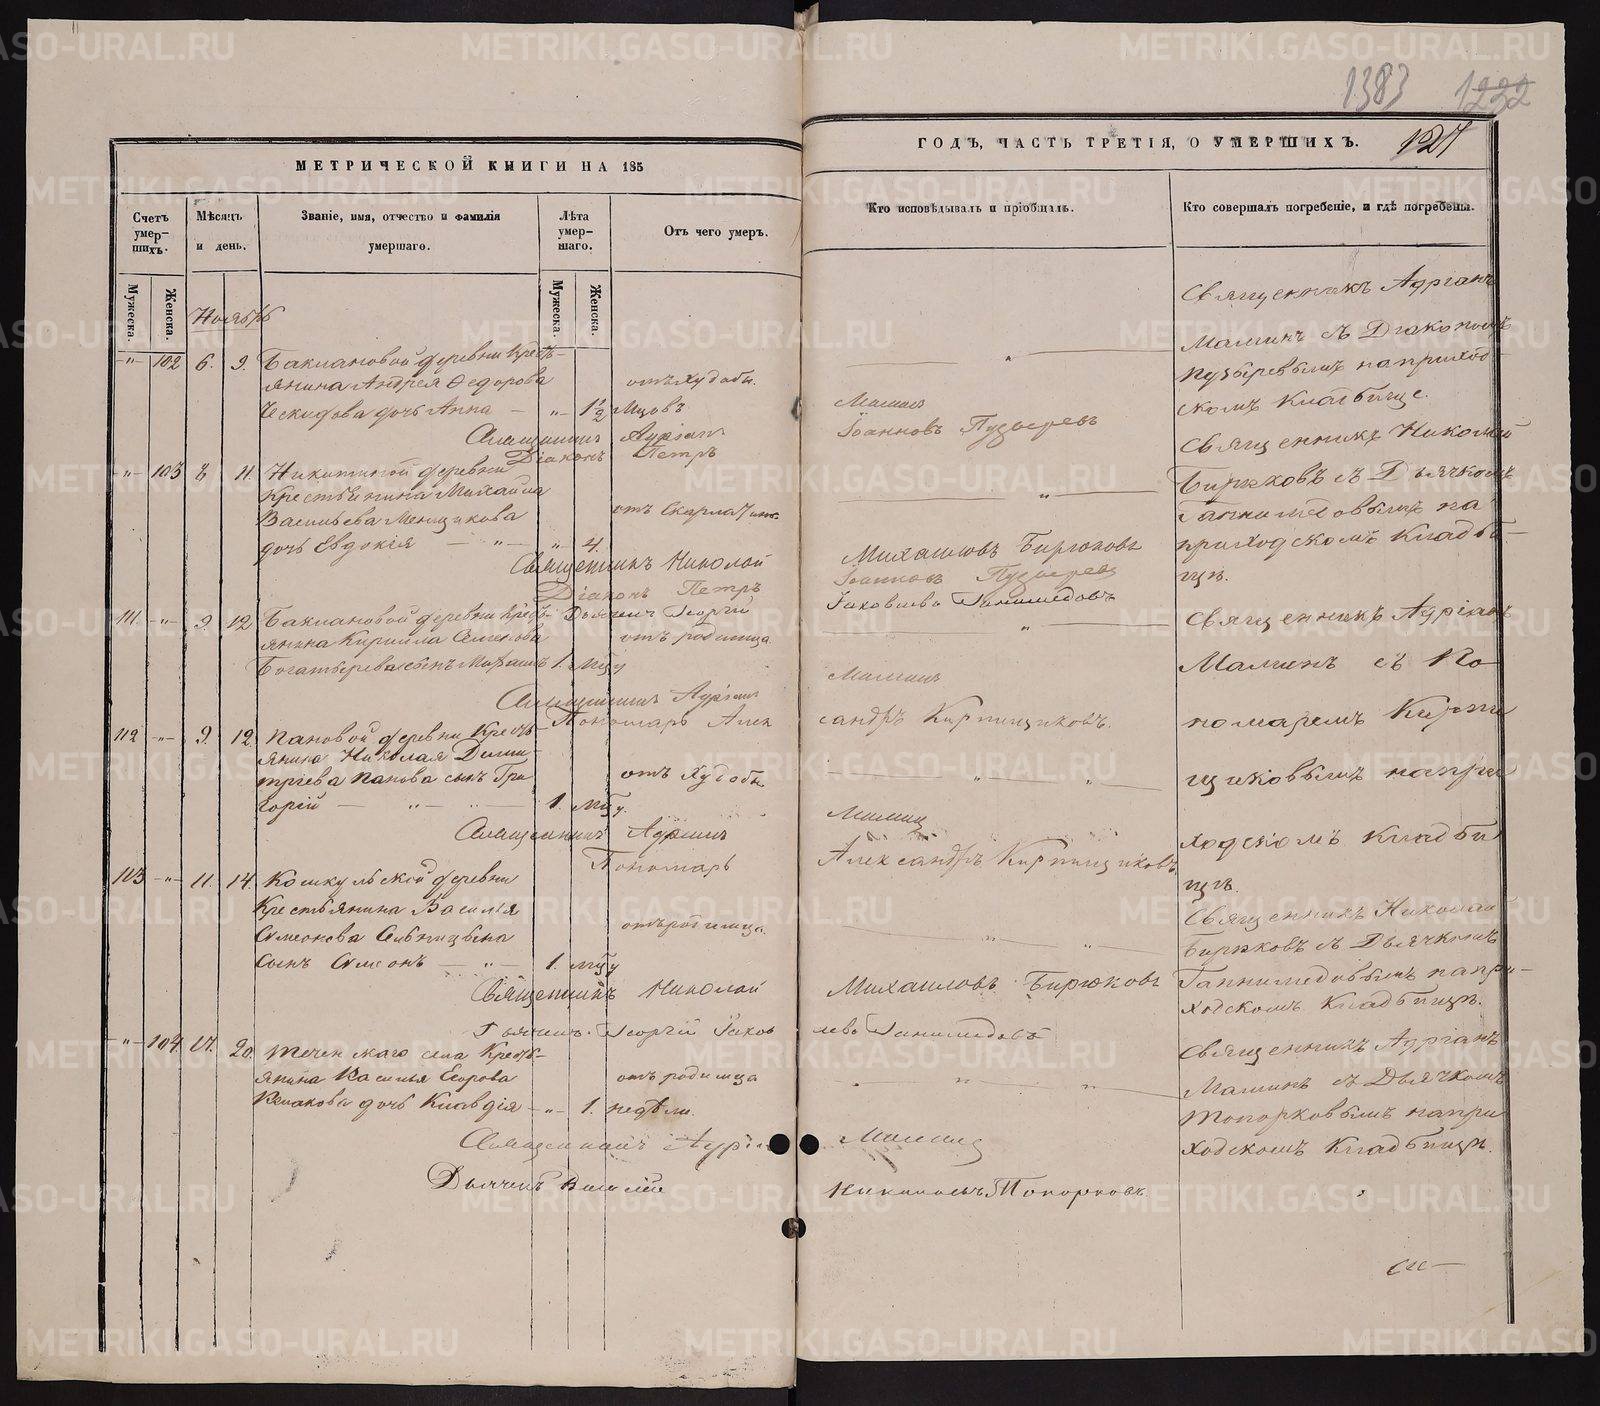 1383 1232
МЕТРИЧЕСКОЙ КНИГИ НА 185
ГОДЪ, ЧАСТЬ ТРЕТІЯ, О УМЕРШИХЪ.
127
Счетъ умер-шихъ.
Мѣсяцъ и день.
Званіе, имя, отчество и фамилія умершаго.
Лѣта умер-шаго.
Отъ чего умеръ.
Кто исповѣдывалъ и пріобщалъ.
Кто совершалъ погребеніе, и гдѣ погребены.
Мужеска.
Женска.
Мужеска.
Женска.
Ноябрь
-"- 102 6. 9. Баклановой деревни Кресть-
янина Андрея Ѳедорова отъ худобы.
дочь Анна — -"- 1½ Мцовъ
Священникъ Адріанъ Маминъ
Діаконъ Петръ Іоанновъ Пузыревъ
Священникъ Адріанъ
Маминъ съ Діакономъ
Пузыревымъ на приход-
скомъ Кладбище.
-"- 103 8 11. Никитиной деревни
Крестьянина Михайла
Васильева Менщикова отъ Скарлатины.
дочь Евдокія — " — -"- 4.
Священникъ Николай Михаиловъ Бирюковъ
Діаконъ Петръ Іоанновъ Пузыревъ
Дьячекъ Георгій Іаковлевъ Ганимедовъ
Священникъ Николай
Бирюковъ съ Дьячкомъ
Ганимедовымъ на
приходскомъ Кладби-
щѣ.
111. -"- 9. 12 Баклановой деревни Кресть-
янина Кирилла Семенова отъ родимца
Богатырева сынъ 1. мцу
Священникъ Адріанъ Маминъ
Пономарь Александръ Кирпищиковъ.
Священникъ Адріанъ
Маминъ съ По
номаремъ Кирпи
щиковымъ на при
ходскомъ Кладби
щѣ.
112 -"- 9. 12. Пановой деревни Кресть-
янина Николая Дими-
тріева Панова сынъ Гри отъ худобы
горій — " — 1. мцу.
Священникъ Адріанъ Маминъ
Пономарь Александръ Кирпищиковъ.
113 -"- 11. 14. Кошкульской деревни
Крестьянина Василья
Симеонова отъ родимца.
сынъ Симеонъ — " — 1. мцу
Священникъ Николай Михаиловъ Бирюковъ
Дьячекъ Георгій Іаковлевъ Ганимедовъ
Священникъ Николай
Бирюковъ съ Дьячкомъ
Ганнимедовымъ на при-
ходскомъ Кладбищѣ.
-"- 104 17. 20. Теченскаго села Кресть-
янина Василья Егорова отъ родимца
дочь Клавдія — -"- 1. недѣли.
Священникъ Адріанъ Маминъ
Дьячекъ Василій Топорковъ
Священникъ Адріанъ
Маминъ съ Дьячкомъ
Топорковымъ на при
ходскомъ Кладбищѣ.
METRIKI.GASO-URAL.RU